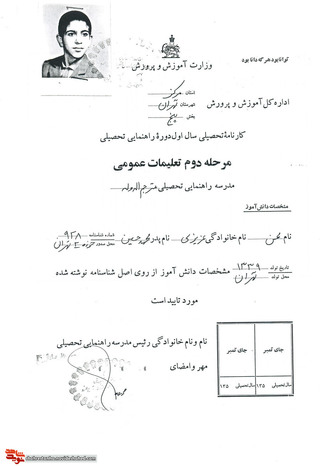 توانا بود هر که دانا بود
وزارت آموزش و پرورش
استان مرکز
اداره کل آموزش و پرورش شهرستان تهران
بخش پنج
کارنامهٔ تحصیلی سال اول دورهٔ راهنمایی تحصیلی
مرحله دوم تعلیمات عمومی
مدرسه راهنمایی تحصیلی مترجم الدوله
مشخصات دانش آموز
نام محسن نام خانوادگی عزیزی نام پدر محمد حسین شماره شناسنامه ۹۲۸
محل صدور حوزه تهران
تاریخ تولد ۱۳۳۹
محل تولد تهران
مشخصات دانش آموز از روی اصل شناسنامه نوشته شده
مورد تایید است
نام و نام خانوادگی رئیس مدرسه راهنمایی تحصیلی
مهر و امضای
جای تمبر جای تمبر
سال تحصیلی ۱۳۵ سال تحصیلی ۱۳۵